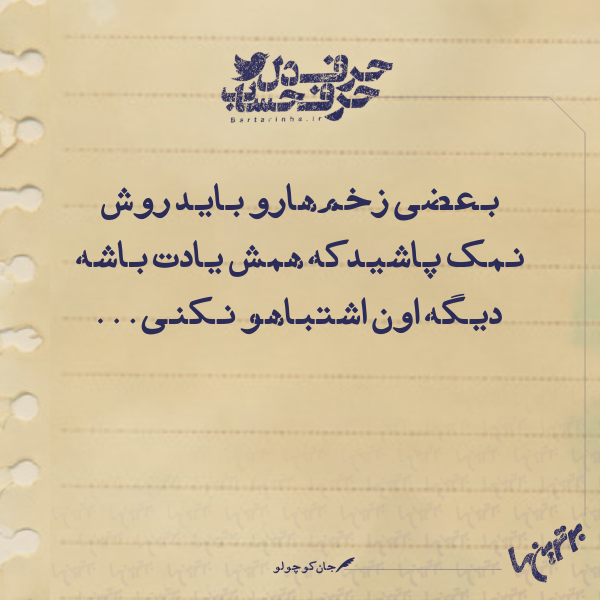 حرف دل
حرف حساب
Bartarinha.ir
بعضی زخم‌هارو باید روش
نمک پاشید که همش یادت باشه
دیگه اون اشتباهو نکنی...
جان کوچولو
برترین‌ها